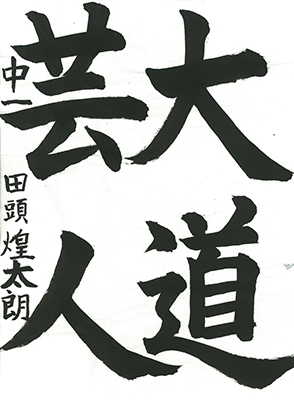 大道
芸人
中一 田頭煌太朗